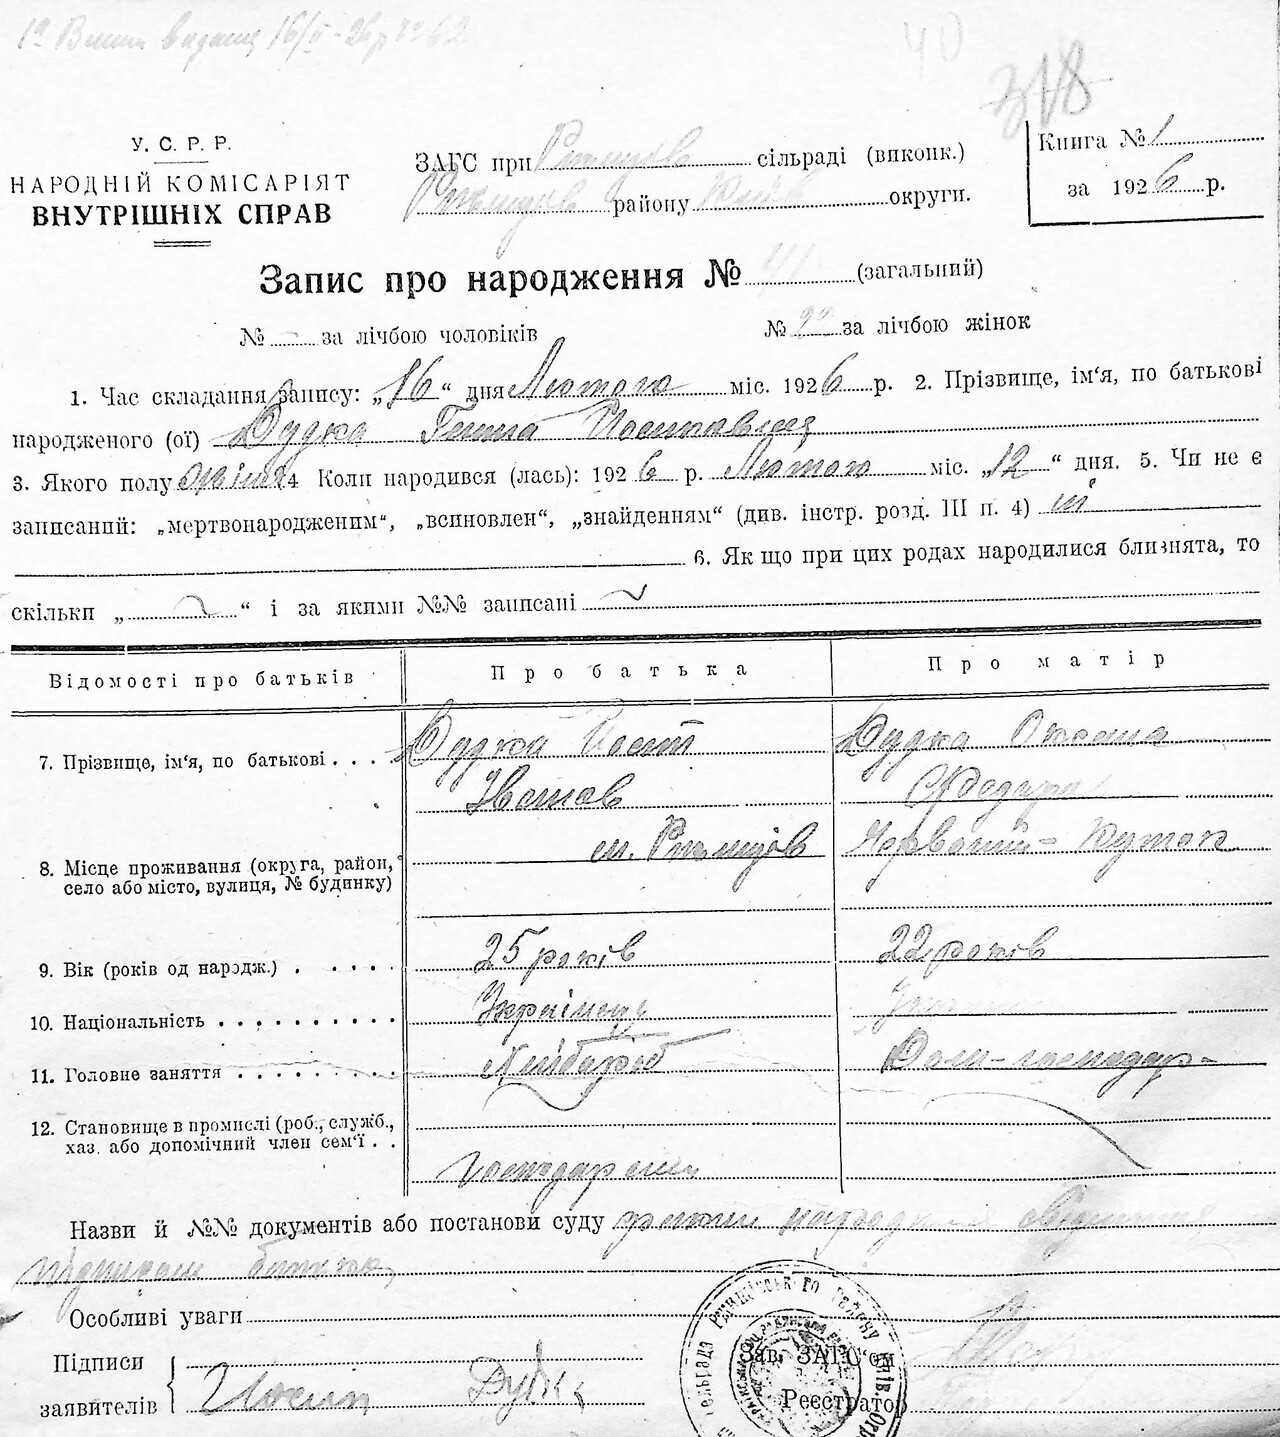 1а Випись видана 16/II-26р № 62
318
У. С. Р. Р.
НАРОДНІЙ КОМІСАРІЯТ
ВНУТРІШНІХ СПРАВ
ЗАГС при Ржищів сільраді (виконк.)
Ржищів району Київ округи.
Книга № 1
за 1926 р.
Запис про народження № 41 (загальний)
№ - за лічбою чоловіків
№ за лічбою жінок
1. Час складання запису: „16“ дня Лютого міс. 1926 р. 2. Прізвище, ім‘я, по батькові
народженого (ої) Дудка Ганна Йосипавна
3. Якого полу 4 Коли народився (лась): 1926 р. Лютого міс. „12“ дня. 5. Чи не є
записаний: „мертвонародженим“, „всиновлен“, „знайденням“ (див. інстр. розд. III п. 4) ні
6. Як що при цих родах народилися близнята, то
скільки „ “ і за якими №№ записані
Відомості про батьків
Про батька
Про матір
7. Прізвище, ім‘я, по батькові . . . .
Дудка Йосип
Дудка Оксана
Іванов
Федора
8. Місце проживання (округа, район,
село або місто, вулиця, № будинку)
м. Ржищів
Червоний - Куток
9. Вік (років од народж.) . . . . .
25 років
22 років
10. Національність . . . . . . . . . .
Українец
11. Головне заняття . . . . . . . . .
Хлібороб
Дом-господар-
12. Становище в промислі (роб., служб.,
хаз. або допомічний член сем‘ї . .
Господарем
Назви й №№ документів або постанови суду
Особливі уваги
Підписи
заявителів
Йосип Дудка
Зав. ЗАГС‘ом
Реєстратор